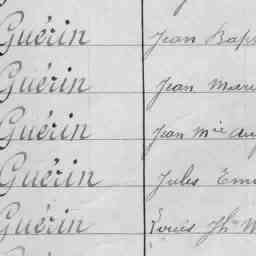 Guérin Jean Bap
Guérin Jean Marie
Guérin Jean Mie Au
Guérin Jules Em
Guérin Louis Jh M